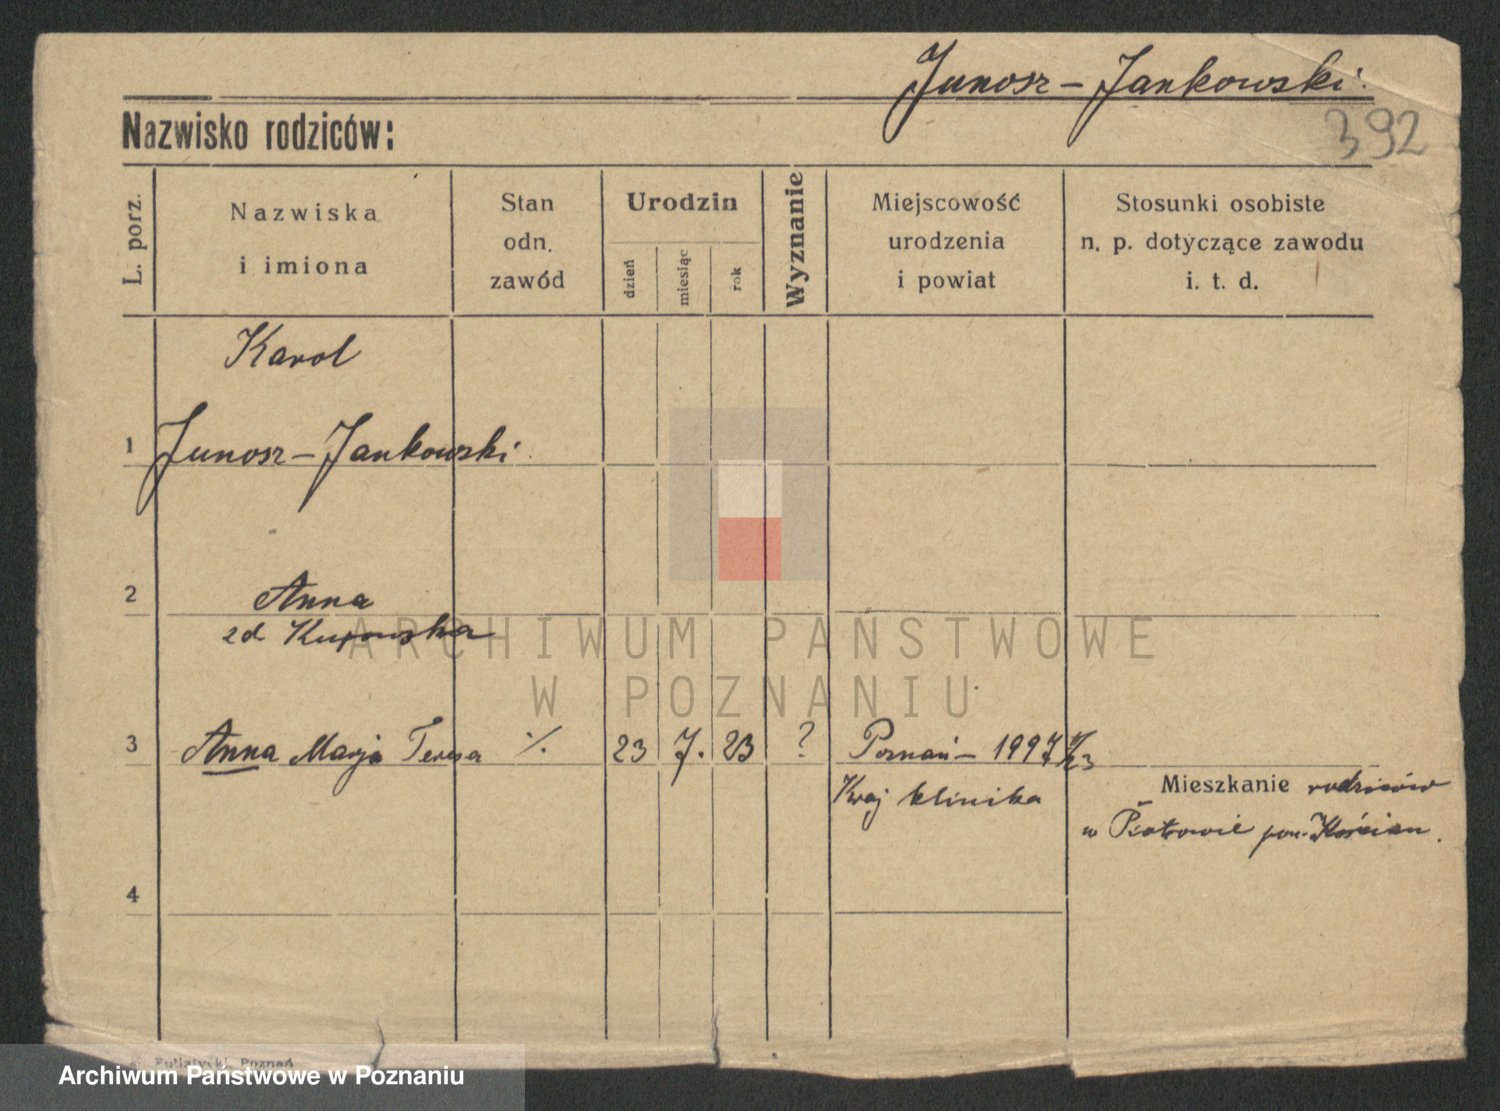 Junosz-Jankowski.
Nazwisko rodziców:
392
L. porz.
Nazwiska
i imiona
Stan
odn.
zawód
Urodzin
dzień
miesiąc
rok
Wyznanie
Miejscowość
urodzenia
i powiat
Stosunki osobiste
n. p. dotyczące zawodu
i. t. d.
Karol
1 Junosz-Jankowski.
2 Anna
zd
ARCHIWUM PAŃSTWOWE
W POZNANIU
3 Anna Marja Teresa ·/· 23 7. 23 ? Poznań - 1997/23
Kraj klinika
Mieszkanie rodziców
w pow. Kościan.
4
Poznań
Archiwum Państwowe w Poznaniu